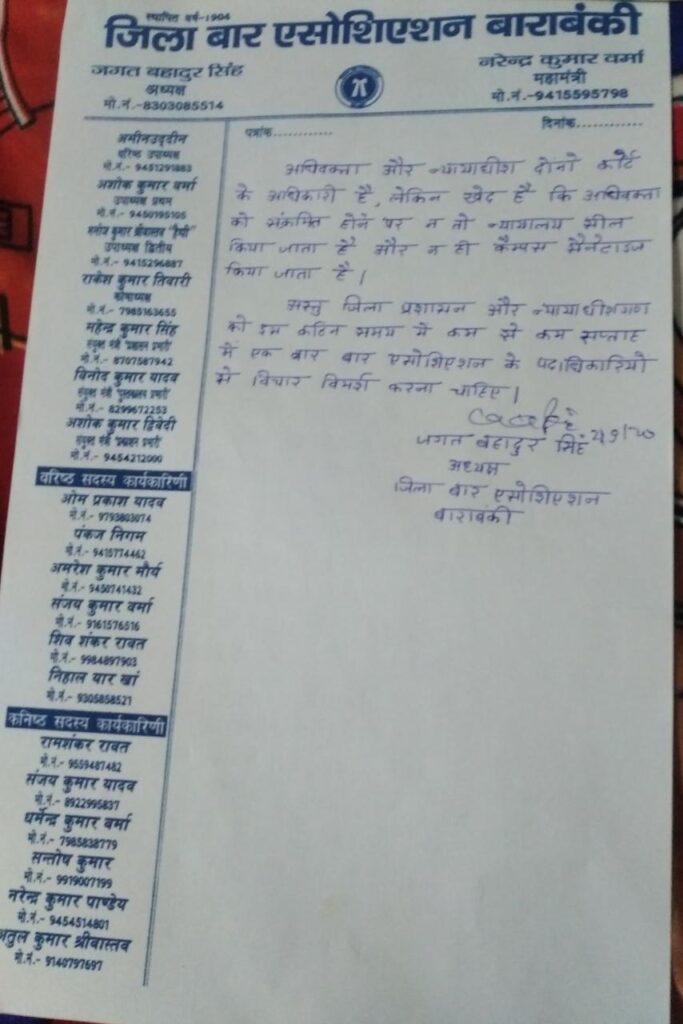 स्थापित वर्ष-1904
जिला बार एसोशिएशन बाराबंकी
जगत बहादुर सिंह
अध्यक्ष
मो.नं.-8303085514
नरेन्द्र कुमार वर्मा
महामंत्री
मो.नं.-9415595798
पत्रांक............
दिनांक............
अमीनउद्दीन
वरिष्ठ उपाध्यक्ष
मो.नं.- 9451291883
अशोक कुमार वर्मा
उपाध्यक्ष प्रथम
मो.नं.- 9450195105
मनोज कुमार श्रीवास्तव
उपाध्यक्ष द्वितीय
मो.नं.- 9415296887
राकेश कुमार तिवारी
कोषाध्यक्ष
मो.नं.- 7985163655
महेन्द्र कुमार सिंह
संयुक्त मंत्री
मो.नं.- 8707587942
विनोद कुमार यादव
संयुक्त मंत्री
मो.नं.- 8299672253
अशोक कुमार द्विवेदी
संयुक्त मंत्री
मो.नं.- 9454212000
वरिष्ठ सदस्य कार्यकारिणी
ओम प्रकाश यादव
मो.नं.- 9793803074
पंकज निगम
मो.नं.- 9415774462
अमरेश कुमार मौर्य
मो.नं.- 9450741432
संजय कुमार वर्मा
मो.नं.- 9161576516
शिव शंकर रावत
मो.नं.- 9984897903
निहाल यार खां
मो.नं.- 9305858521
कनिष्ठ सदस्य कार्यकारिणी
रामशंकर रावत
मो.नं.- 9559487482
संजय कुमार यादव
मो.नं.- 8922995837
धर्मेन्द्र कुमार वर्मा
मो.नं.- 7985838779
सन्तोष कुमार
मो.नं.- 9919007199
नरेन्द्र कुमार पाण्डेय
मो.नं.- 9454514801
अतुल कुमार श्रीवास्तव
मो.नं.- 9140797697
अधिवक्ता और न्यायाधीश दोनो कोर्ट
के अधिकारी है, लेकिन खेद है कि अधिवक्ता
को संक्रमित होने पर न तो न्यायालय सील
किया जाता है और न ही कैम्पस सैनेटाइज
किया जाता है।
अस्तु जिला प्रशासन और न्यायाधीशगण
को इस कठिन समय मे कम से कम सप्ताह
में एक बार बार एसोशिएशन के पदाधिकारियो
से विचार विमर्श करना चाहिए।
जगत बहादुर सिंह
अध्यक्ष
जिला बार एसोशिएशन
बाराबंकी